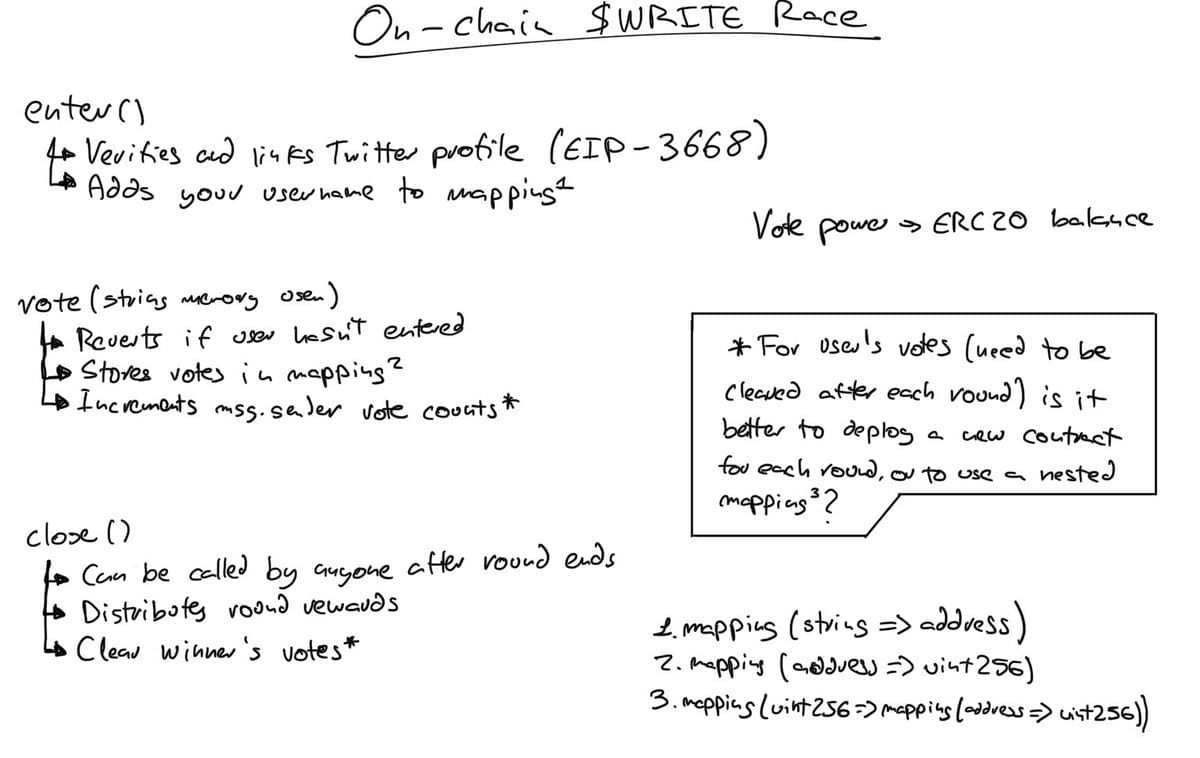 On-chain $WRITE Race
enter()
↳ Verifies and links Twitter profile (EIP-3668)
↳ Adds your username to mapping¹
Vote power → ERC20 balance
vote (string memory user)
↳ Reverts if user hasn't entered
↳ Stores votes in mapping²
↳ Increments msg.sender vote counts*
* For user's votes (need to be
cleared after each round) is it
better to deploy a new contract
for each round, or to use a nested
mapping³?
close ()
↳ Can be called by anyone after round ends
↳ Distributes round rewards
↳ Clear winner's votes*
1. mapping (string => address)
2. mapping (address => uint256)
3. mapping (uint256 => mapping (address => uint256))